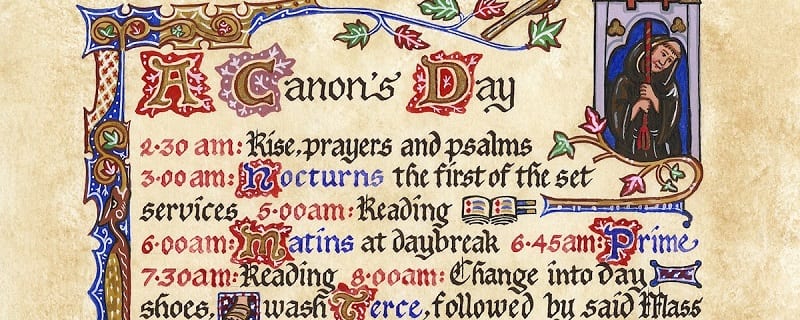 A Canon's Day
2·30 am: Rise, prayers and psalms
3·00 am: Nocturns the first of the set
services 5·00am: Reading
6·00am: Matins at daybreak 6·45am: Prime
7·30am: Reading 8·00am: Change into day
shoes, wash Terce, followed by said Mass